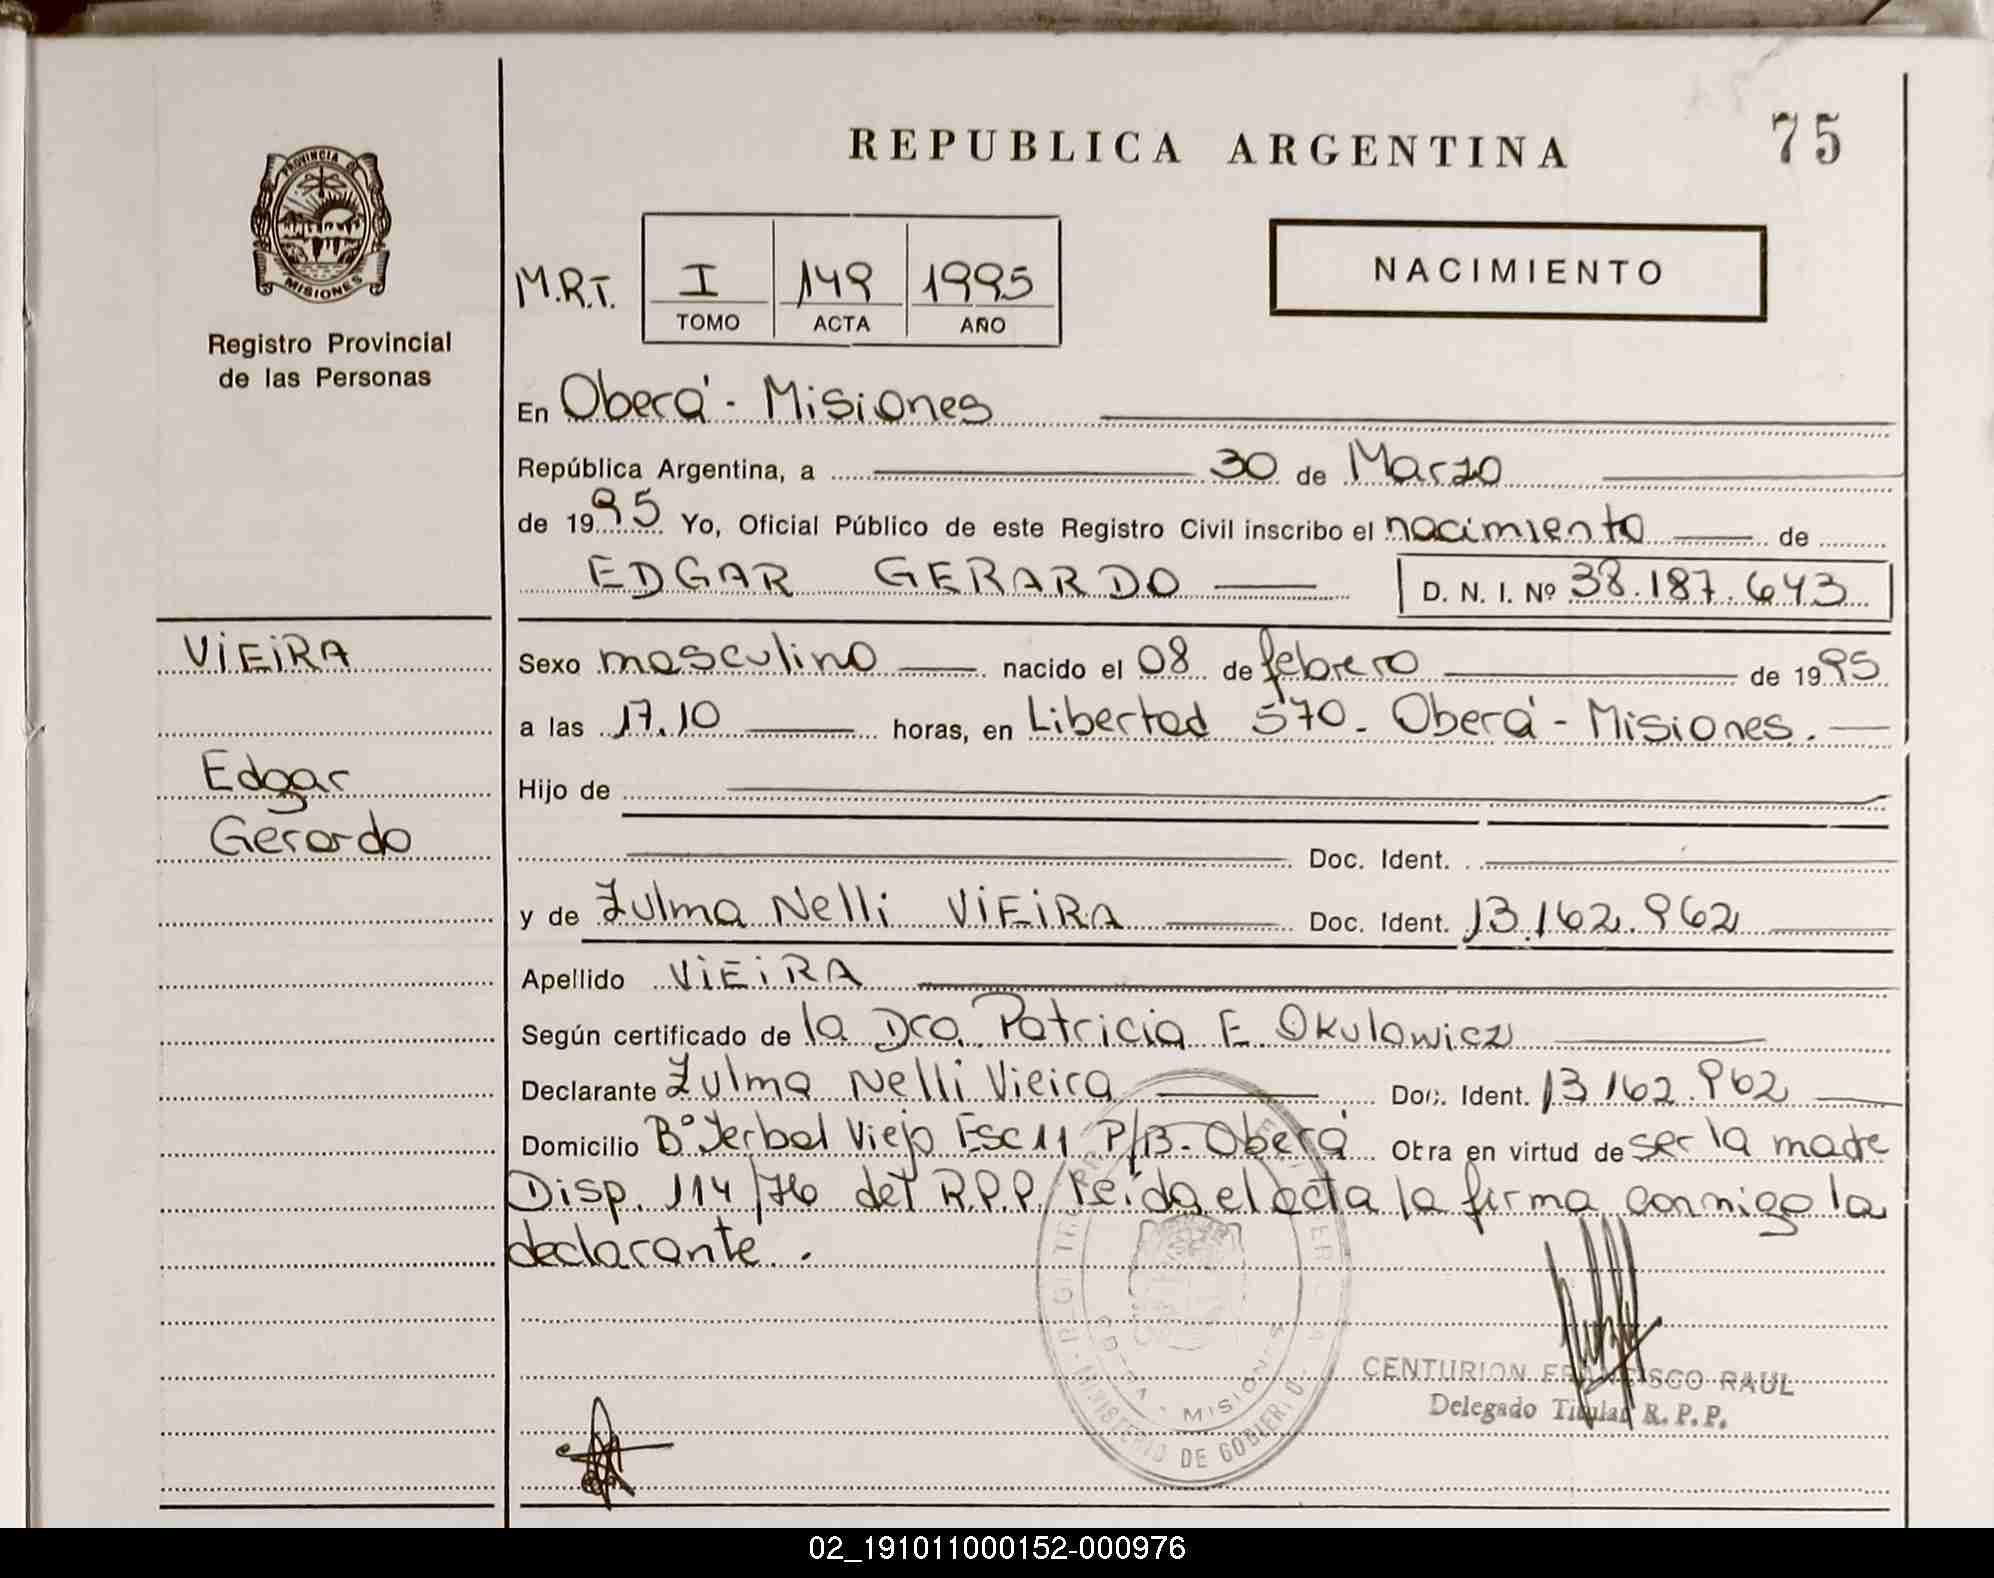 REPUBLICA ARGENTINA
75
PROVINCIA DE
MISIONES
Registro Provincial
de las Personas
M.R.T.
I 149 1995
TOMO ACTA AÑO
NACIMIENTO
En Oberá - Misiones
República Argentina, a 30 de Marzo
de 1995 Yo, Oficial Público de este Registro Civil inscribo el nacimiento de
EDGAR GERARDO D. N. I. Nº 38.187.643
VIEIRA
Edgar
Gerardo
Sexo masculino nacido el 08 de febrero de 1995
a las 17.10 horas, en Libertad 570 - Oberá - Misiones.
Hijo de
Doc. Ident.
y de Zulma Nelli VIEIRA Doc. Ident. 13.162.962
Apellido VIEIRA
Según certificado de la Dra. Patricia E. Okulowicz
Declarante Zulma Nelli Vieira Doc. Ident. 13.162.962
Domicilio Bº Yerbal Viejo Esc 11 P/B - Oberá Obra en virtud de ser la madre
Disp. 114/76 del R.P.P. Leída el acta la firma conmigo la
declarante.
MISIONES
MINISTERIO DE GOBIERNO
CENTURION FRANCISCO RAUL
Delegado Titular R. P. P.
02_191011000152-000976